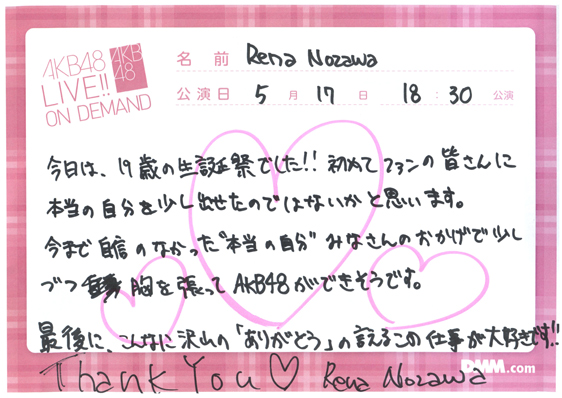 AKB48
LIVE!!
ON DEMAND
AKB
48
名 前 Rena Nozawa
公演日 5 月 17 日 18 : 30 公演
今日は、19歳の生誕祭でした!! 初めてファンの皆さんに
本当の自分を少し出せたのではないかと思います。
今まで自信のなかった"本当の自分" みなさんのおかげで少し
づつ 胸を張ってAKB48ができそうです。
最後に、こんなに沢山の「ありがとう」の言えるこの仕事が大好きです!!
Thank You♡ Rena Nozawa
DMM.com